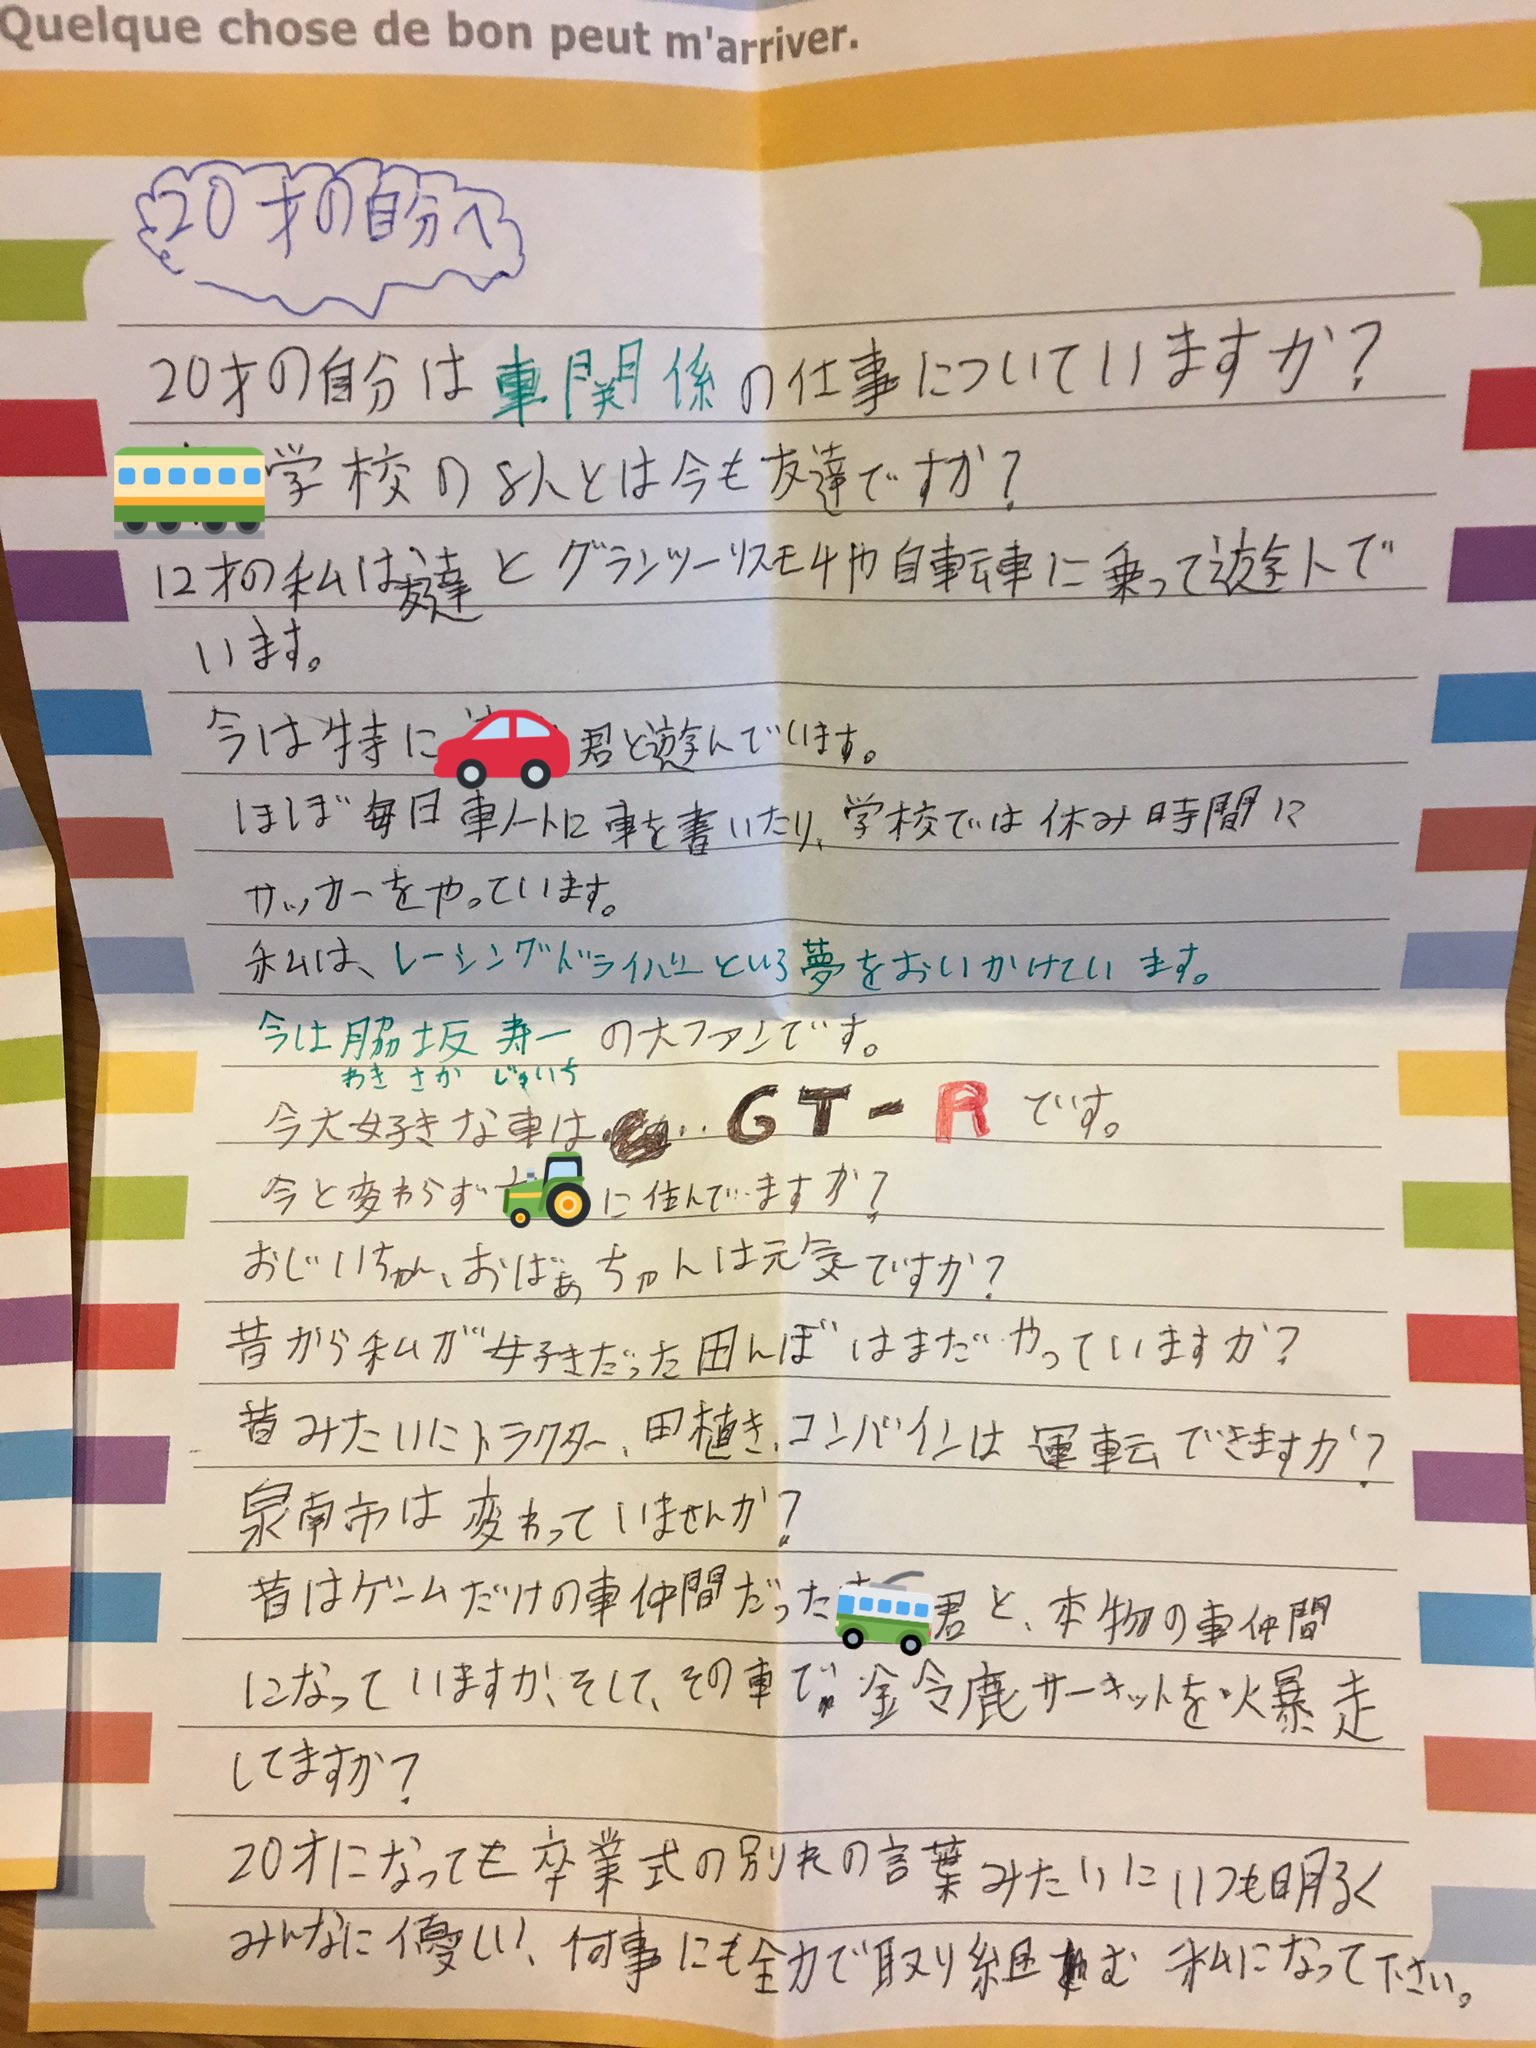 Quelque chose de bon peut m'arriver.
20才の自分へ
20才の自分は車関係の仕事についていますか?
学校の8人とは今も友達ですか?
12才の私は友達とグランツーリスモ4や自転車に乗って遊んで
います。
今は特に君と遊んでいます。
ほぼ毎日車ノートに車を書いたり、学校では休み時間に
サッカーをやっています。
私は、レーシングドライバーという夢をおいかけています。
今は脇坂寿一の大ファンです。
わきさかじゅいち
今大好きな車は・・・GT-Rです。
今と変わらずに住んでいますか?
おじいちゃん、おばぁちゃんは元気ですか?
昔から私が好きだった田んぼはまだやっていますか?
昔みたいにトラクター、田植き、コンバインは運転できますか?
泉南市は変わっていませんか?
昔はゲームだけの車仲間だった君と、本物の車仲間
になっていますか、そして、その車で鈴鹿サーキットを爆走
してますか?
20才になっても卒業式の別れの言葉みたいにいつも明るく
みんなに優しい、何事にも全力で取り組む私になって下さい。